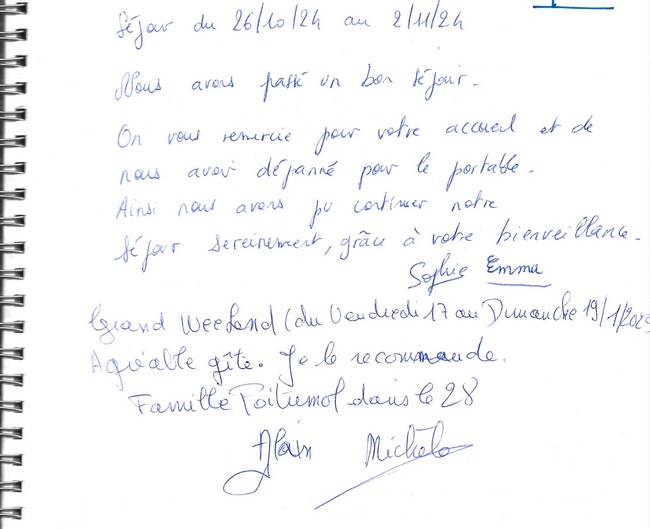 Séjour du 26/10/24 au 2/11/24
Nous avons passé un bon séjour.
On vous remercie pour votre accueil et de
nous avoir dépanné pour le portable.
Ainsi nous avons pu continuer notre
séjour sereinement, grâce à votre bienveillance.
Sophie Emma
Grand Weekend (du Vendredi 17 au Dimanche 19/1/202
Agréable gîte. Je le recommande.
Famille dans le 28
Alain Michèle